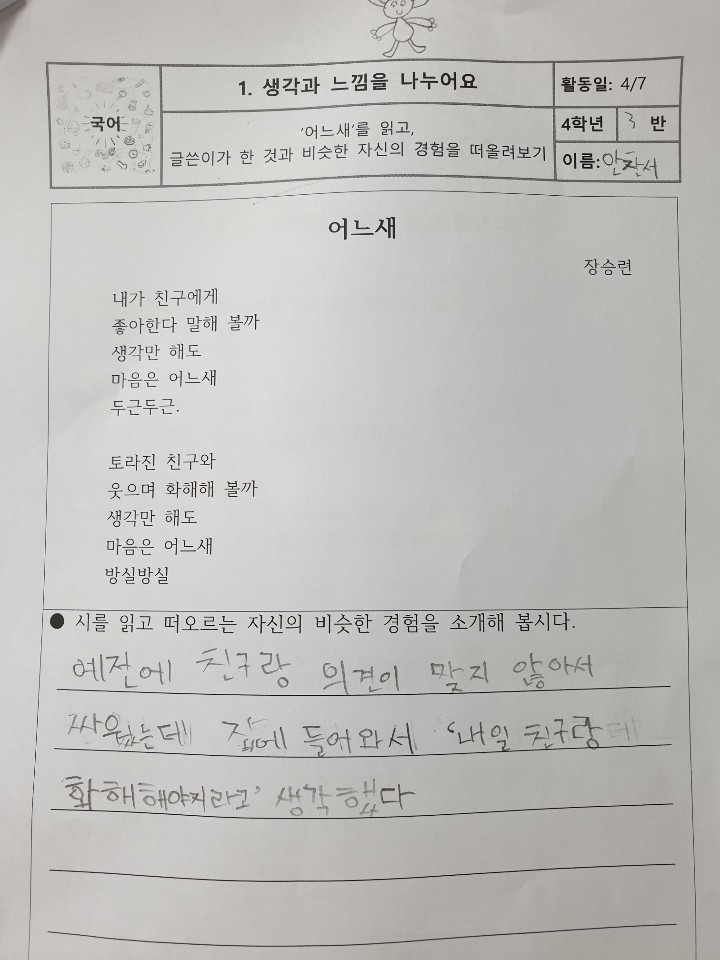 국어
1. 생각과 느낌을 나누어요
활동일: 4/7
'어느새'를 읽고,
글쓴이가 한 것과 비슷한 자신의 경험을 떠올려보기
4학년 3 반
이름:안찬서
어느새
장승련
내가 친구에게
좋아한다 말해 볼까
생각만 해도
마음은 어느새
두근두근.
토라진 친구와
웃으며 화해해 볼까
생각만 해도
마음은 어느새
방실방실
● 시를 읽고 떠오르는 자신의 비슷한 경험을 소개해 봅시다.
예전에 친구랑 의견이 맞지 않아서
싸웠는데 집에 들어와서 '내일 친구랑
화해해야지라고' 생각했다